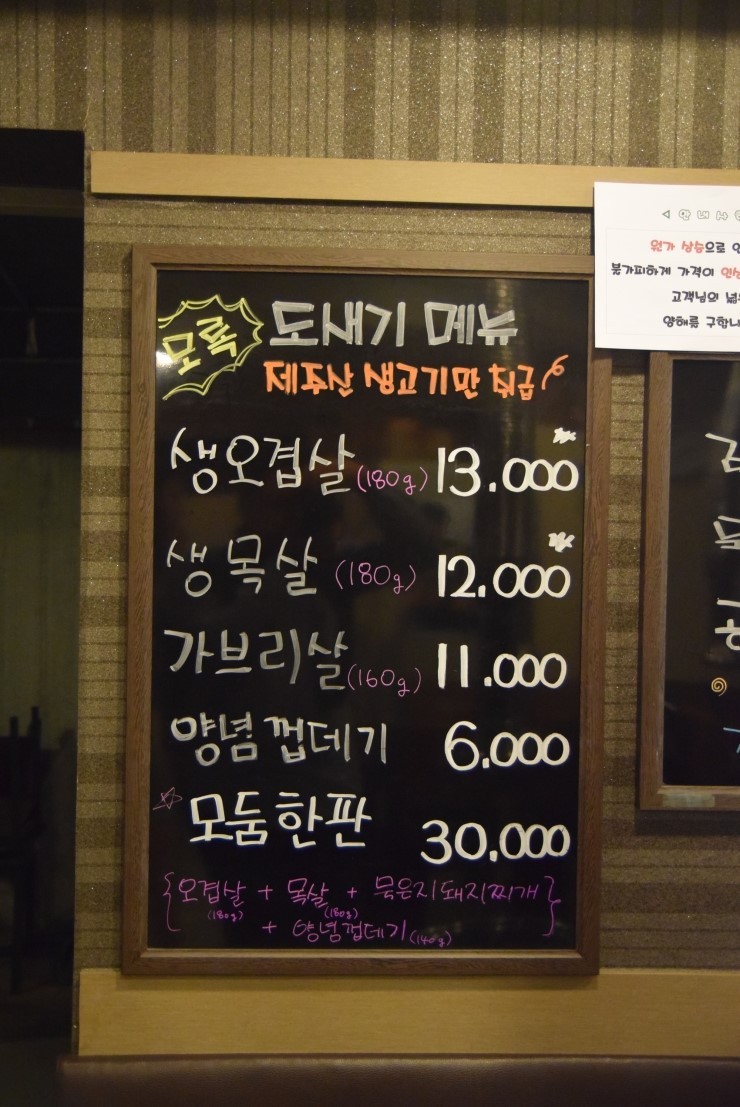 모록 도새기 메뉴
제주산 생고기만 취급
생오겹살 (180g) 13.000
생목살 (180g) 12.000
가브리살 (160g) 11.000
양념껍데기 6.000
☆ 모둠한판 30.000
{오겹살 + 목살 + 묵은지돼지찌개
(180g) (180g)
+ 양념껍데기 (140g)}
원가 상승으로
불가피하게 가격이
고객님의
양해를 구합니